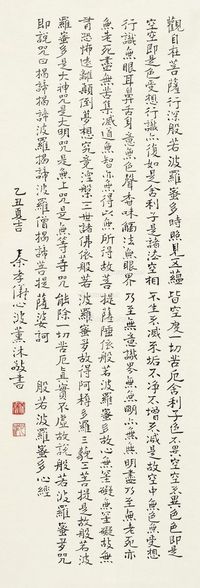 觀自在菩薩行深般若波羅蜜多時照見五蘊皆空度一切苦厄舍利子色不異空空不異色色即是
空空即是色受想行識亦復如是舍利子是諸法空相不生不滅不垢不淨不增不減是故空中無色無受想
行識無眼耳鼻舌身意無色聲香味觸法無眼界乃至無意識界無無明亦無無明盡乃至無老死亦
無老死盡無苦集滅道無智亦無得以無所得故菩提薩埵依般若波羅蜜多故心無罣礙無罣礙故無
有恐怖遠離顛倒夢想究竟涅槃三世諸佛依般若波羅蜜多故得阿耨多羅三藐三菩提故知般若波
羅蜜多是大神咒是大明咒是無上咒是無等等咒能除一切苦厄真實不虛故說般若波羅蜜多咒
即說咒曰揭諦揭諦波羅揭諦波羅僧揭諦菩提薩婆訶 般若波羅蜜多心經
乙丑 秦李 心波薰沐敬書